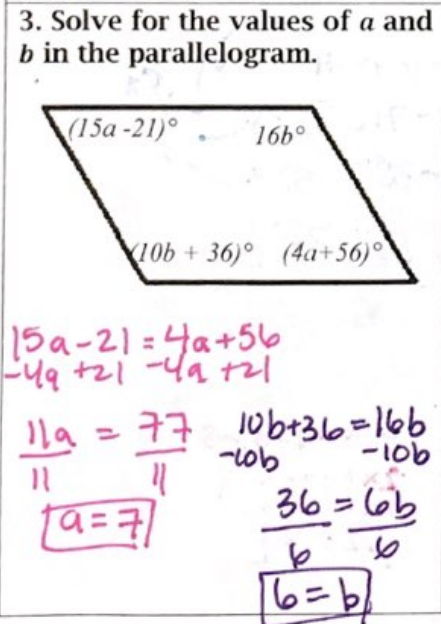 3. Solve for the values of a and
b in the parallelogram.
(15a -21)° 16b°
(10b + 36)° (4a+56)°
15a-21=4a+56
-4a +21 -4a +21
11a = 77
11 11
a=7
10b+36=16b
-10b -10b
36 = 6b
6 6
6=b